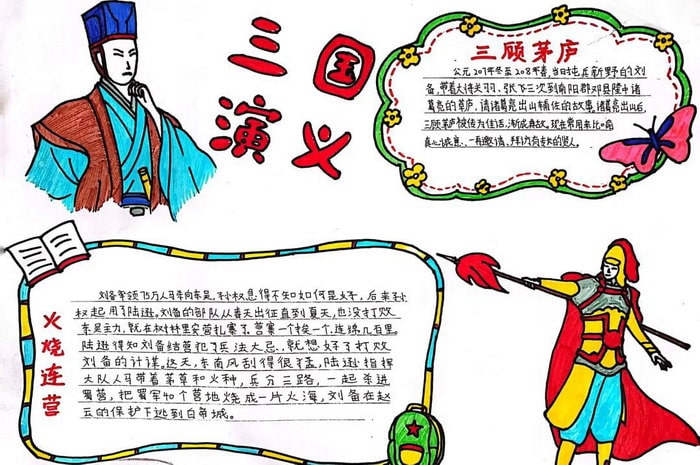 三国
演义
三顾茅庐
公元207年冬至208年春,当时屯兵新野的刘
备,带着大将关羽、张飞三次到南阳郡邓县隆中诸
葛亮的茅庐,请诸葛亮出山辅佐的故事,诸葛亮出山后,
三顾茅庐被传为佳话,渐成典故,现在常用来比喻
真心诚意,一再邀请、拜访有专长的贤人。
火烧连营
刘备率领75万人马杀向东吴,孙权急得不知如何是好,后来孙
权起用了陆逊。刘备的部队从春天出征直到夏天,也没打败
东吴主力,就在树林里安营扎寨了。营寨一个挨一个,连绵几百里。
陆逊得知刘备结营犯了兵法大忌,就想好了打败
刘备的计谋。这天,东南风刮得很猛,陆逊指挥
大队人马带着茅草和火种,兵分三路,一起杀进
蜀营,把蜀军40个营地烧成一片火海,刘备在赵
云的保护下逃到白帝城。